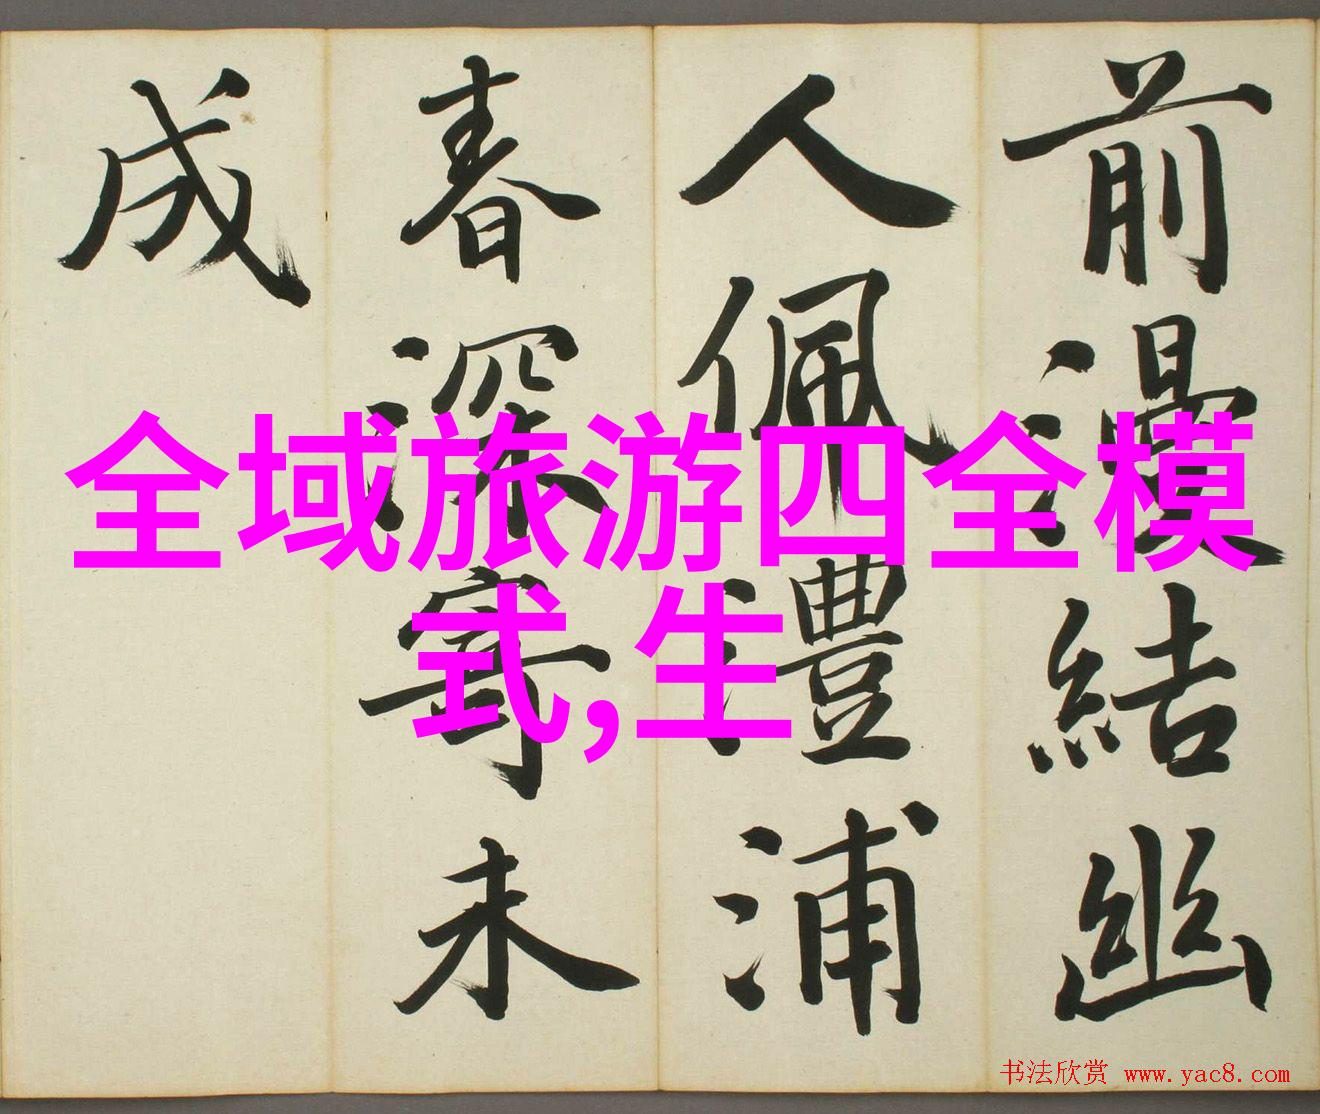 前漫結幽
人佩澧浦
春深寄未
成
全域旅游四全模
式,生
书法欣赏 www.yac8.com